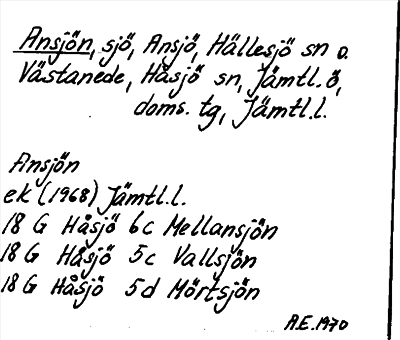 Ansjön, sjö, Ansjö, Hällesjö sn o.
Västanede, Håsjö sn, Jämtl. ö,
doms. tg, Jämtl.l.
Ansjön
ek (1968) Jämtl.l.
18 G Håsjö 6c Mellansjön
18 G Håsjö 5c Vallsjön
18 G Håsjö 5d Mörtsjön
A.E. 1970